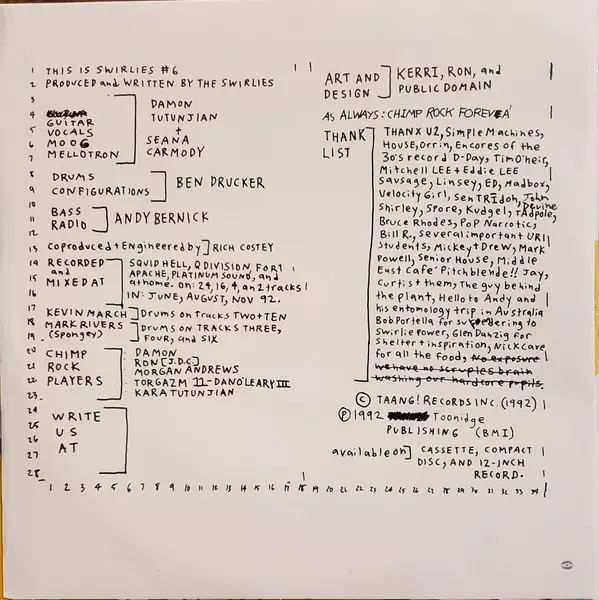 1 THIS IS SWIRLIES #6
2 PRODUCED and WRITTEN BY THE SWIRLIES
3
4
5 GUITAR
VOCALS
6 MOOG
7 MELLOTRON
DAMON
TUTUNJIAN
+
SEANA
CARMODY
8 DRUMS
9 CONFIGURATIONS
BEN DRUCKER
10
11 BASS
RADIO
ANDY BERNICK
12
13 coproduced + Engineered by RICH COSTEY
14 RECORDED
and
15 MIXED AT
16
SQUID HELL, Q DIVISION, FORT
APACHE, PLATINUM SOUND, and
at home. on: 24, 16, 4, an 2 tracks
IN: JUNE, AUGUST, NOV 92.
17 KEVIN MARCH Drums on Tracks TWO + TEN
18 MARK RIVERS
19 (Spongey)
DRUMS ON TRACKS THREE,
FOUR, and SIX
20 CHIMP
21 ROCK
22 PLAYERS
23
DAMON
RON [J.D.C]
MORGAN ANDREWS
TORGAZM II - DAN O'LEARY III
KARA TUTUNJIAN
24
25 WRITE
26 US
27 AT
28
1 2 3 4 5 6 7 8 9 10 11 12 13 14 15 16 17 18 19 20 21 22 23 24 25 26 27 28 29 30 31 32 33 34
ART AND
DESIGN
KERRI, RON, and
PUBLIC DOMAIN
AS ALWAYS: CHIMP ROCK FOREVEA'
THANK
LIST
THANX U2, Simple Machines,
HOUSE, Orrin, Encores of the
30's record D-Day, Tim O'heir,
Mitchell LEE + Eddie LEE
Savsage, Linsey, ED, Madbox,
Velocity Girl, Sen TRIdoh, John Devine
Shirley, Spore, Kudgel, TAdpole,
Bruce Rhodes, Pop Narcotic,
Bill R., Several important URII
Students, Mickey + Drew, Mark
Powell, Senior House, Middle
East Cafe' Pitchblende!! Jay,
Curtis + them, The guy behind
the plant, Hello to Andy and
his entomology trip in Australia
Bob Portella for surrendering to
Swirlie Power, Glen Danzig for
Shelter + inspiration, Nick Cave
for all the food, No exposure
we have no scruples brain
washing our hardcore pupils.
© TAANG! RECORDS INC. (1992)
℗ 1992 Toonidge
PUBLISHING (BMI)
available on CASSETTE, COMPACT
DISC, AND 12-INCH
RECORD.